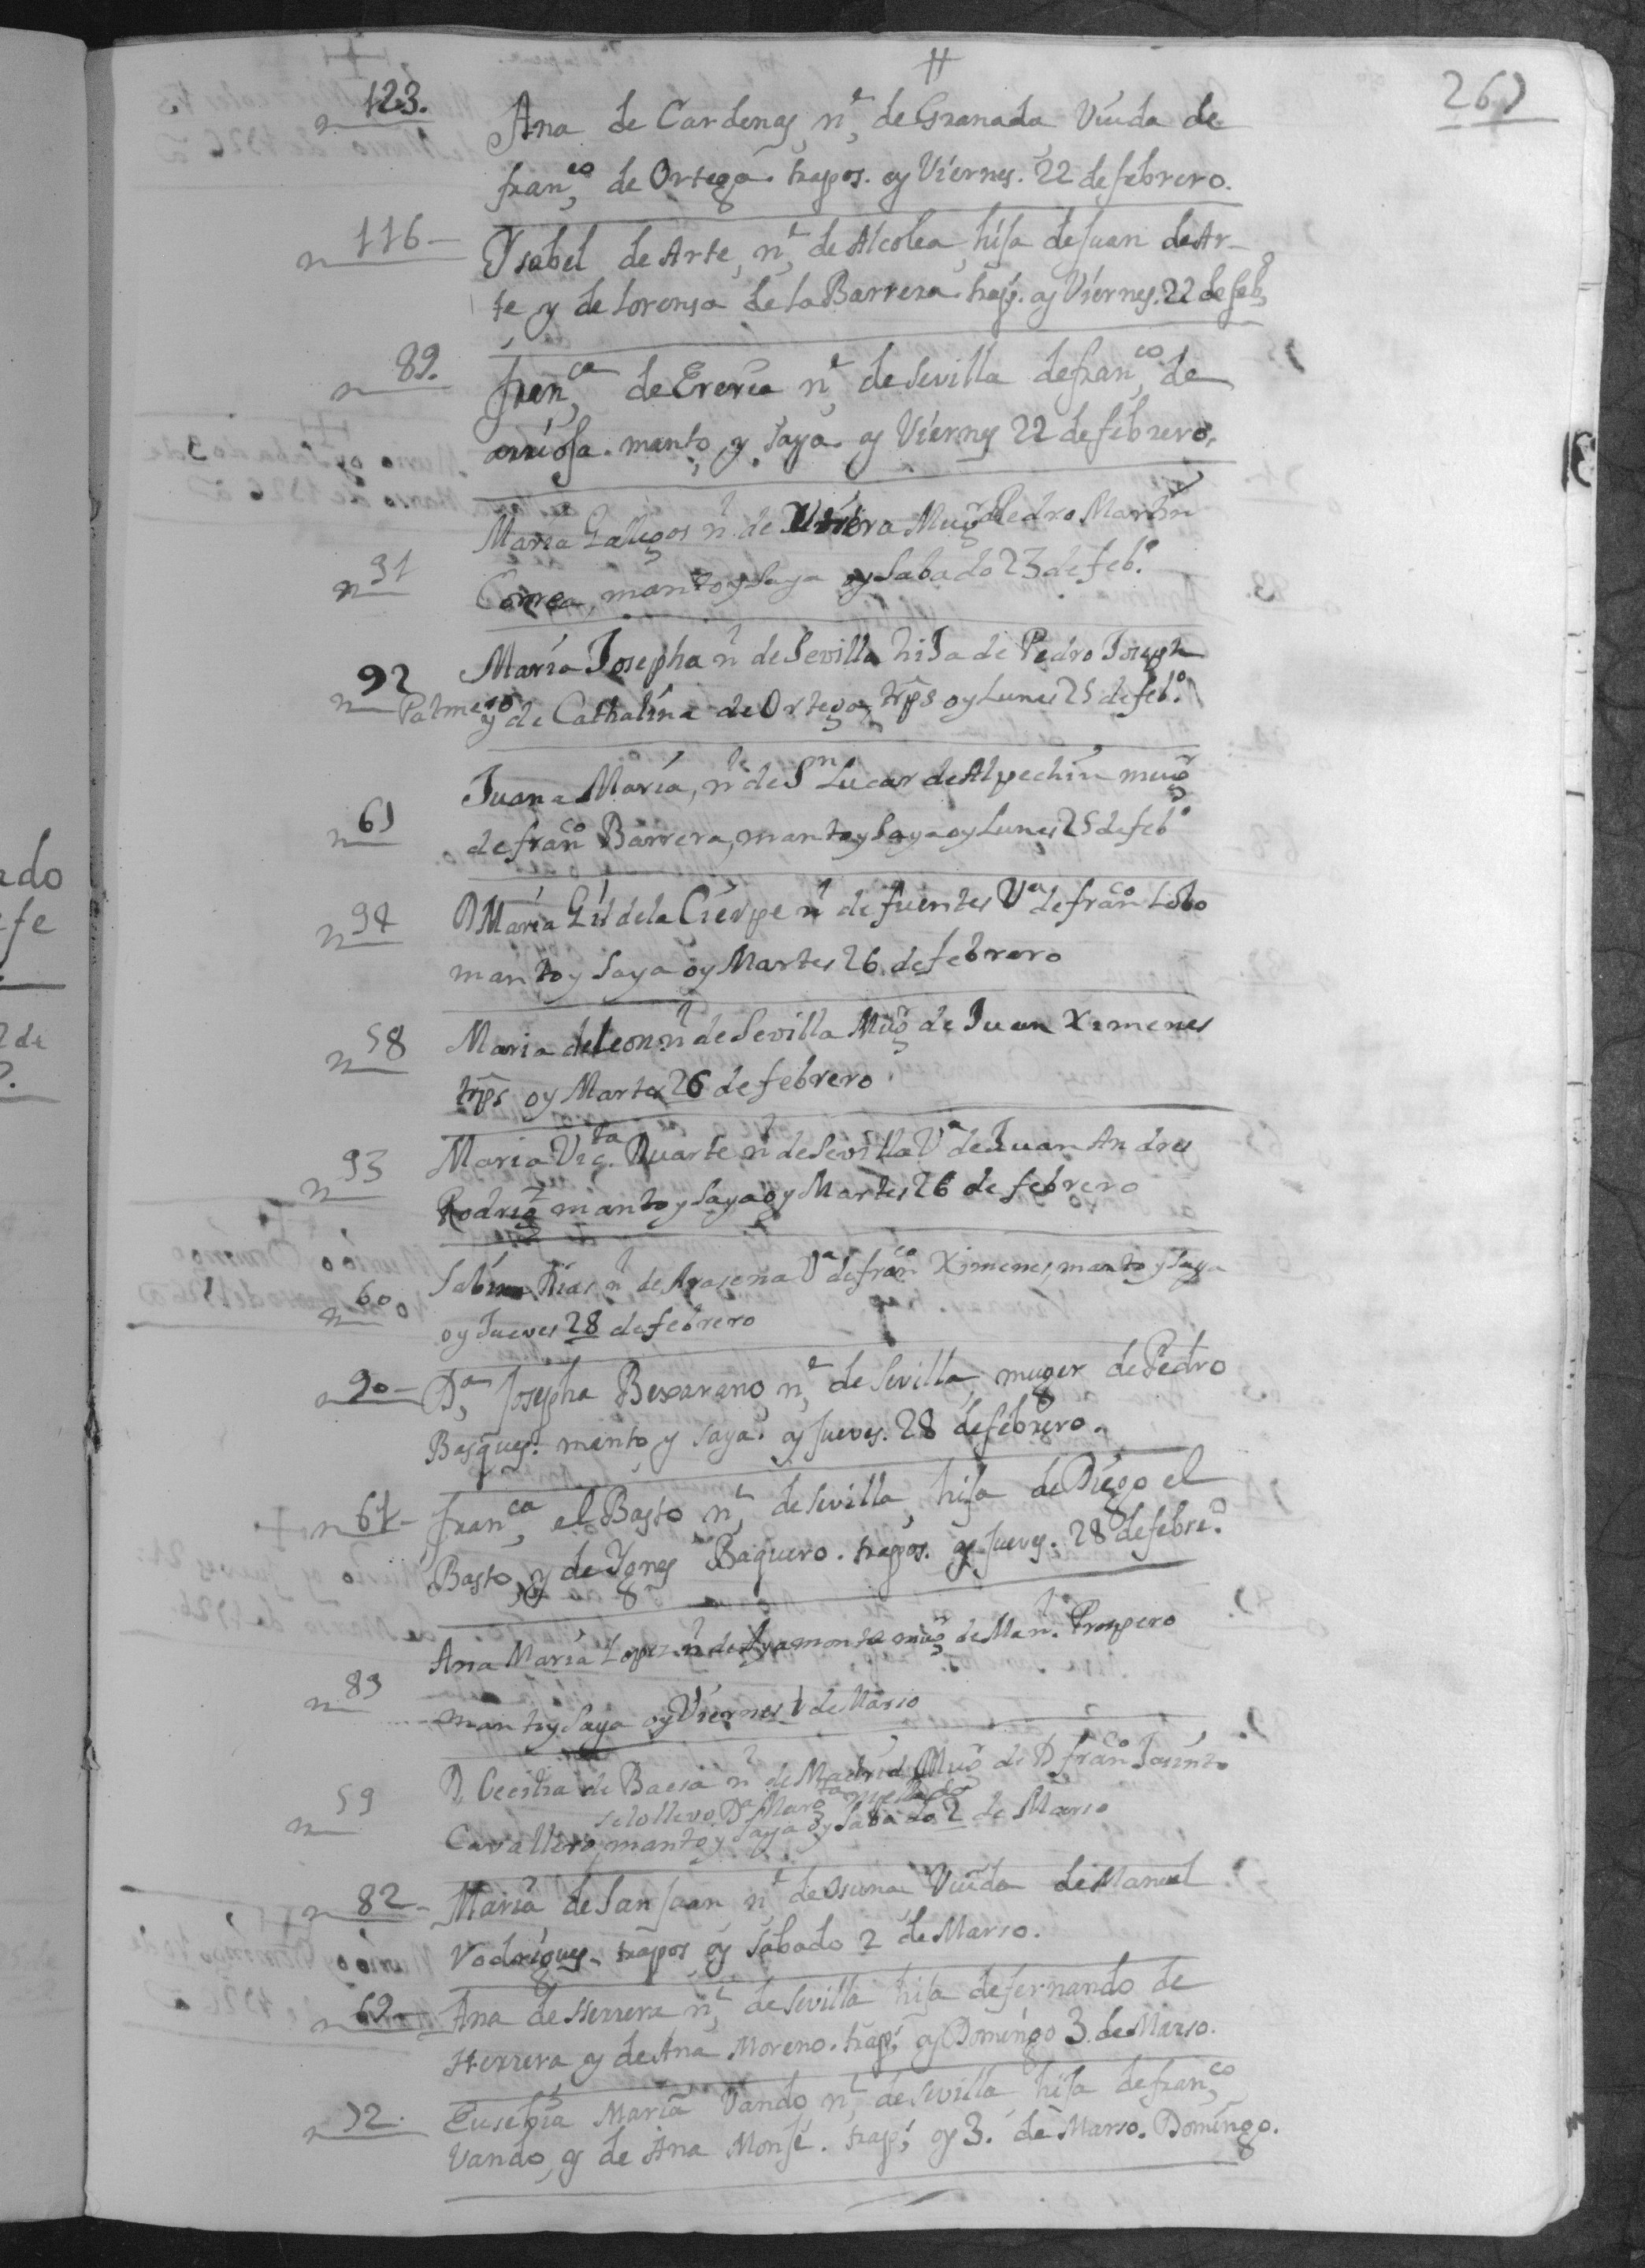 267
123.
Ana de Cardenas nl de Granada Viuda de
franco de Ortega. trapos. oy Viernes. 22 de febrero.
n 116
Ysabel de Arte, nl de Alcolea, hija de Juan de Ar-
te y de Lorensa de la Barrera. trap. oy Viernes. 22 de feb
n 89.
franca de nl de Sevilla de franco de
manto, y saya. oy Viernes 22 de febrero.
Maria Gallegos nl de Mugr Pedro Martin
n 91
Correa, manto y Saya oy Sabado 23 de febo
n 92
Maria Josepha nl de Sevilla hiJa de Pedro Joseph
Palmero y de Cathalina de Ortega, trps oy Lunes 25 de febo
Juana Maria, nl de Sn Lucar de Alpechin mugr
n 61
de franco Barrera, manto y Saya oy Lunes 25 de febo
n 94
D Maria Gil de la nl de fuentes Va de franco Lobo
manto y Saya oy Martes 26 de febrero
n 58
Maria de Leon nl de Sevilla Mugr de Juan Ximenes
trps oy Martes 26 de febrero
n 93
Maria Victa Duarte nl de Sevilla Va de Juan Andres
Rodrigz manto y Saya oy Martes 26 de febrero
n 60
Sabina Rias nl de Arasena Va de franco Ximenes, manto y Saya
oy Jueves 28 de febrero
n 90
Da Josepha Bexarano, nl de Sevilla, muger de Pedro
Basques. manto, y saya. oy Jueves. 28 de febrero.
n 67
franca el Basto nl de Sevilla, hija de Diego el
Basto, y de Ygnes Baquero. trapos. oy Jueves. 28 de febreo
Ana Maria Lopez nl de Ayamonte mugr de Manl Prospero
n 83
manto y Saya oy Viernes 1 de Marso
D Cecilia de Baesa nl de Madrid Mugr de D franco Jasinto
n 59
se lo llevo Da Margta
Cavallero, manto y Saya oy Sabado 2 de Marso
n 82
Maria de San Juan nl de Osuna Viuda de Manuel
Vodrigues. trapos oy Sabado 2 de Marso.
n 62
Ana de Herrera nl de Sevilla hija de fernando de
Herrera, y de Ana Moreno. trap. oy Domingo 3. de Marso.
Eusebia Maria Vando nl de Sevilla hija de franco
Vando, y de Ana Monje. trap. oy 3. de Marso. Domingo.